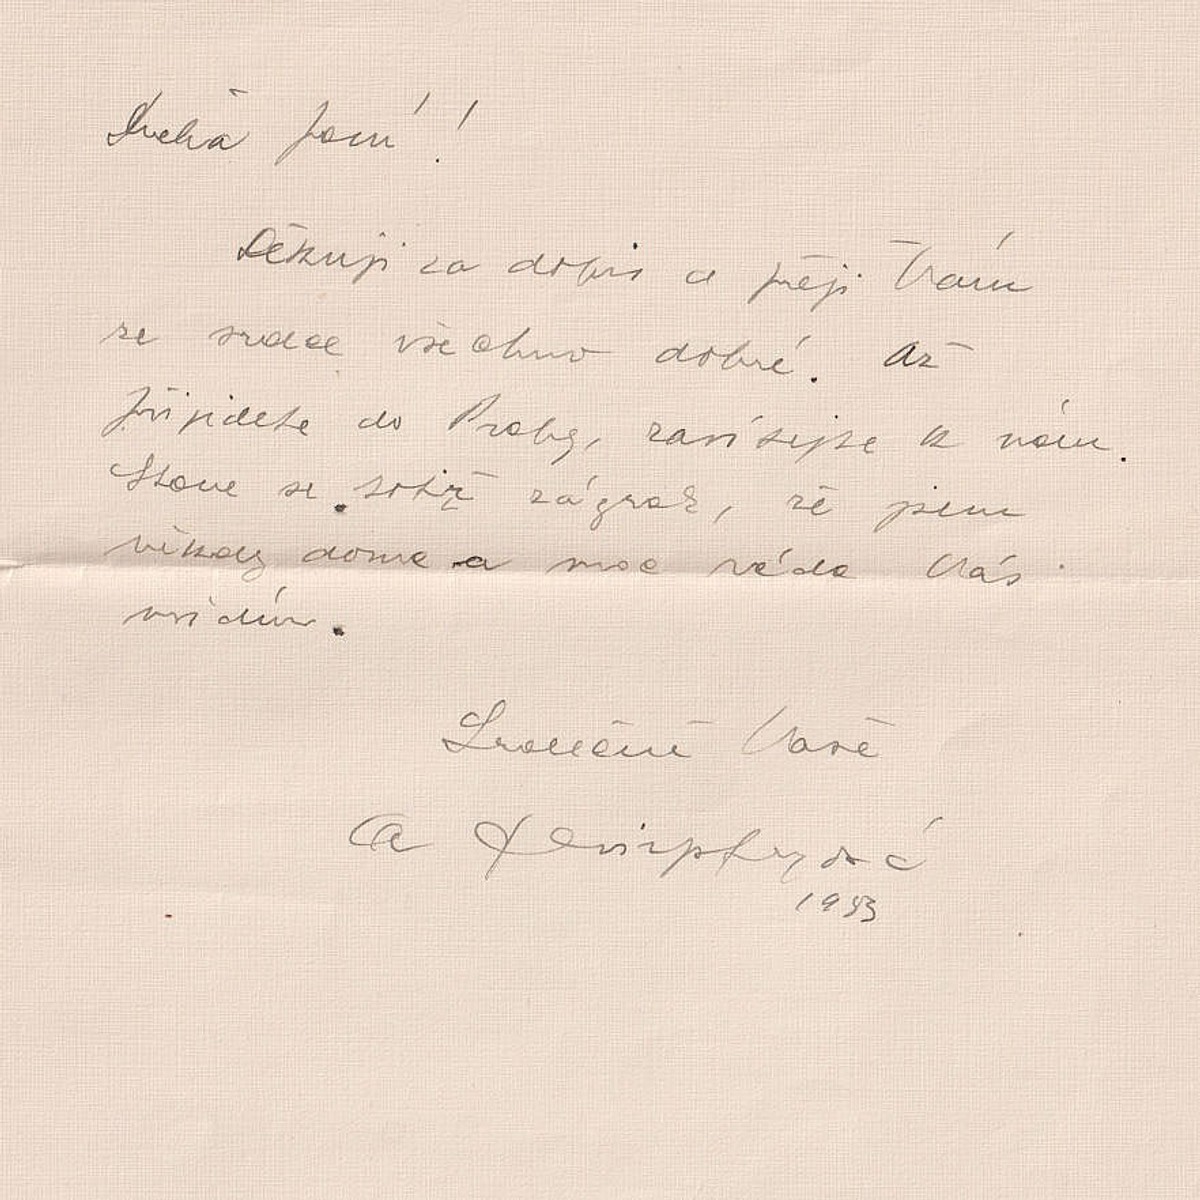 Drahá paní!
Děkuji za dopis a přeji Vám
ze srdce všechno dobré. Až
přijedete do Prahy, zavítejte k nám.
Stane se totiž zázrak, že jsem
někdy doma a moc ráda Vás
uvidím.
Srdečně Vaše
A
1983